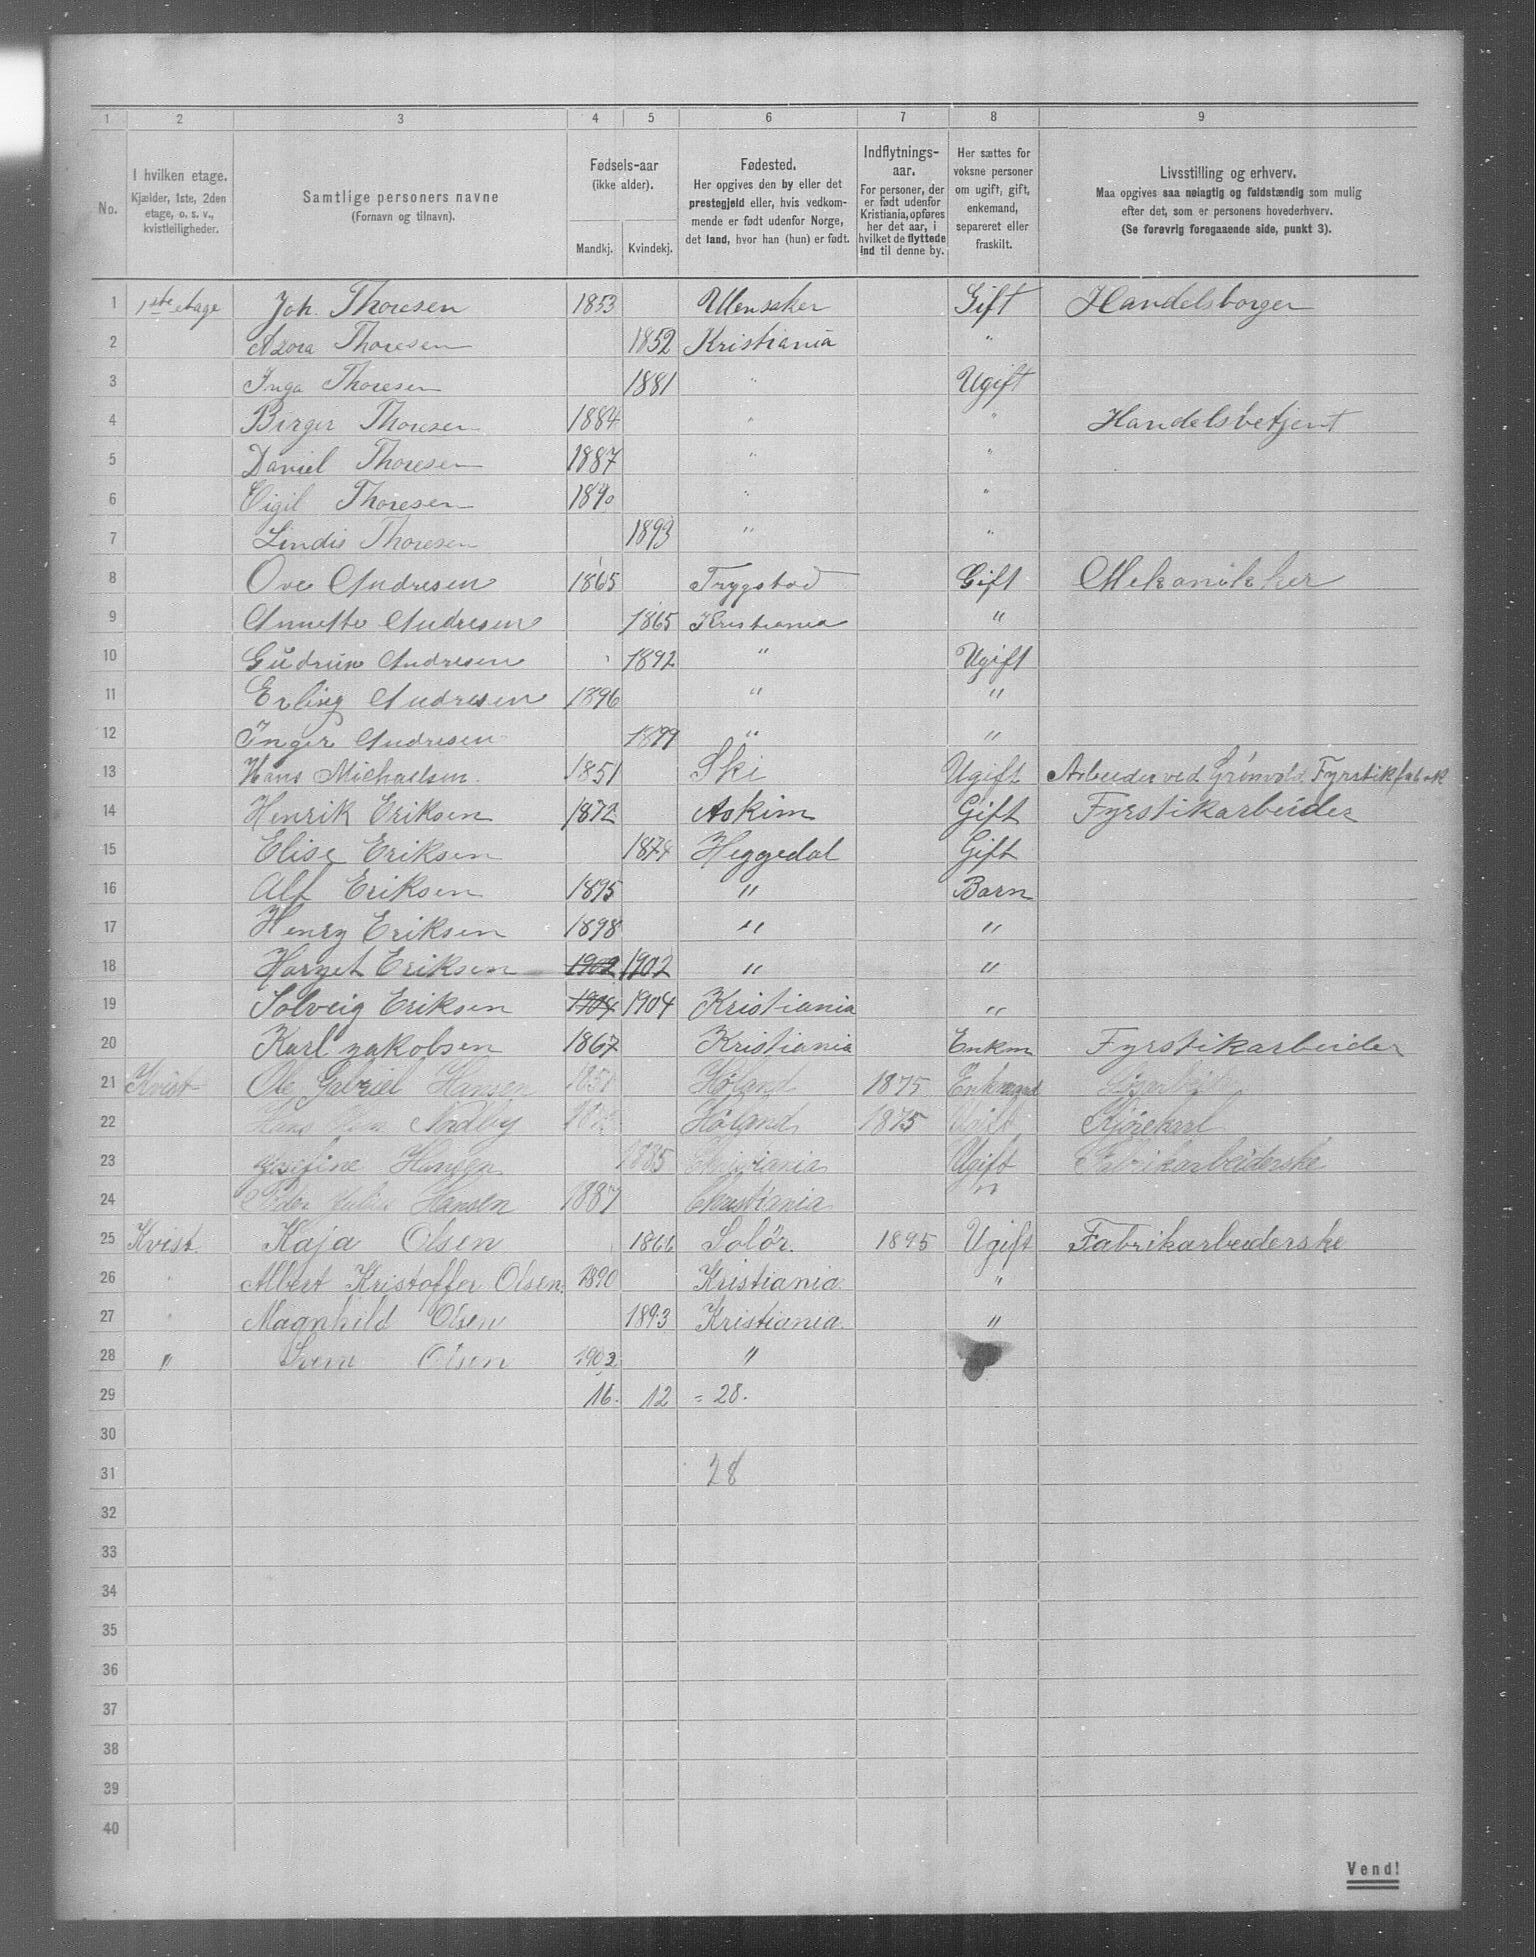 1 2 3 4 5 6 7 8 9
No.
I hvilken etage.
Kjælder, 1ste, 2den
etage, o. s. v.,
kvistleiligheder.
Samtlige personers navne
(Fornavn og tilnavn).
Fødsels-aar
(ikke alder).
Mandkj. Kvindekj.
Fødested.
Her opgives den by eller det
prestegjeld eller, hvis vedkom-
mende er født udenfor Norge,
det land, hvor han (hun) er født.
Indflytnings-
aar.
For personer, der
er født udenfor
Kristiania, opføres
her det aar, i
hvilket de flyttede
ind til denne by.
Her sættes for
voksne personer
om ugift, gift,
enkemand,
separeret eller
fraskilt.
Livsstilling og erhverv.
Maa opgives saa nøiagtig og fuldstændig som mulig
efter det, som er personens hovederhverv.
(Se forøvrig foregaaende side, punkt 3).
1 1ste etage Joh. Thoresen 1853 Ullensaker Gift Handelsborger
2 Thoresen 1852 Kristiania "
3 Inga Thoresen 1881 " Ugift
4 Birger Thoresen 1884 " " Handelsbetjent
5 Daniel Thoresen 1887 " "
6 Eigil Thoresen 1890 " "
7 Lindis Thoresen 1893 " "
8 Ove Andresen 1865 Trygstad Gift Mekanikker
9 Annette Andresen 1865 Kristiania "
10 Gudrun Andresen 1892 " Ugift
11 Erling Andresen 1896 " "
12 Inger Andresen 1899 " "
13 Hans Michaelsen. 1851 Ski Ugift Arbeider ved Grønvold Fyrstikfabrik
14 Henrik Eriksen 1872 Askim Gift Fyrstikarbeider
15 Elise Eriksen 1874 Heggedal Gift
16 Alf Eriksen 1895 " Barn
17 Henry Eriksen 1898 " "
18 Harget Eriksen 1902 1902 " "
19 Solveig Eriksen 1904 1904 Kristiania "
20 Karl Jakobsen 1867 Kristiania Enkm Fyrstikarbeider
21 Kvist Ole Gabriel Hansen 1851 Høland 1875 Enkemand
22 Hans Nordby Høland 1875 Ugift Kjørekarl
23 Josefine Hansen 1885 Kristiania Ugift Fabrikarbeiderske
24 Hansen 1887 Christiania "
25 Kvist. Kaja Olsen 1866 Solör. 1895 Ugift Fabrikarbeiderske
26 " Albert Kristoffer Olsen. 1890 Kristiania. "
27 " Magnhild Olsen 1893 Kristiania. "
28 " Olsen 1902 "
29 16. 12 = 28.
30
31 28
32
33
34
35
36
37
38
39
40
Vend!